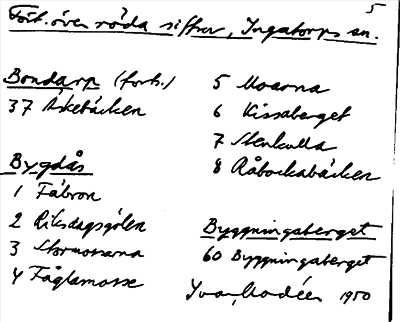 5
Fört. över röda siffror, Ingatorps sn.
Bondarp (forts.)
37 Åkebäcken
Bygdås
1 Fäbron
2 Riksdagsgölen
3 Stormossarna
4 Fåglamosse
5 Moarna
6 Kissaberget
7 Stenkulla
8 Råbockabäcken
Byggningaberget
60 Byggningaberget
Ivar Modéer 1950